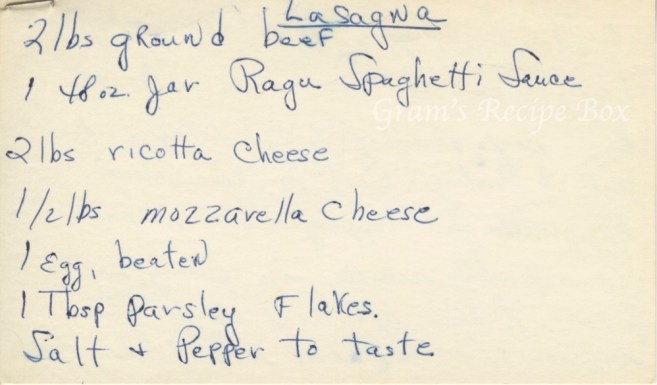 Lasagna
2 lbs ground beef
1 48 oz. Jar Ragu Spaghetti Sauce
Gram's Recipe Box
2 lbs ricotta Cheese
1/2 lbs mozzarella Cheese
1 Egg, beaten
1 Tbsp Parsley Flakes.
Salt + Pepper to taste